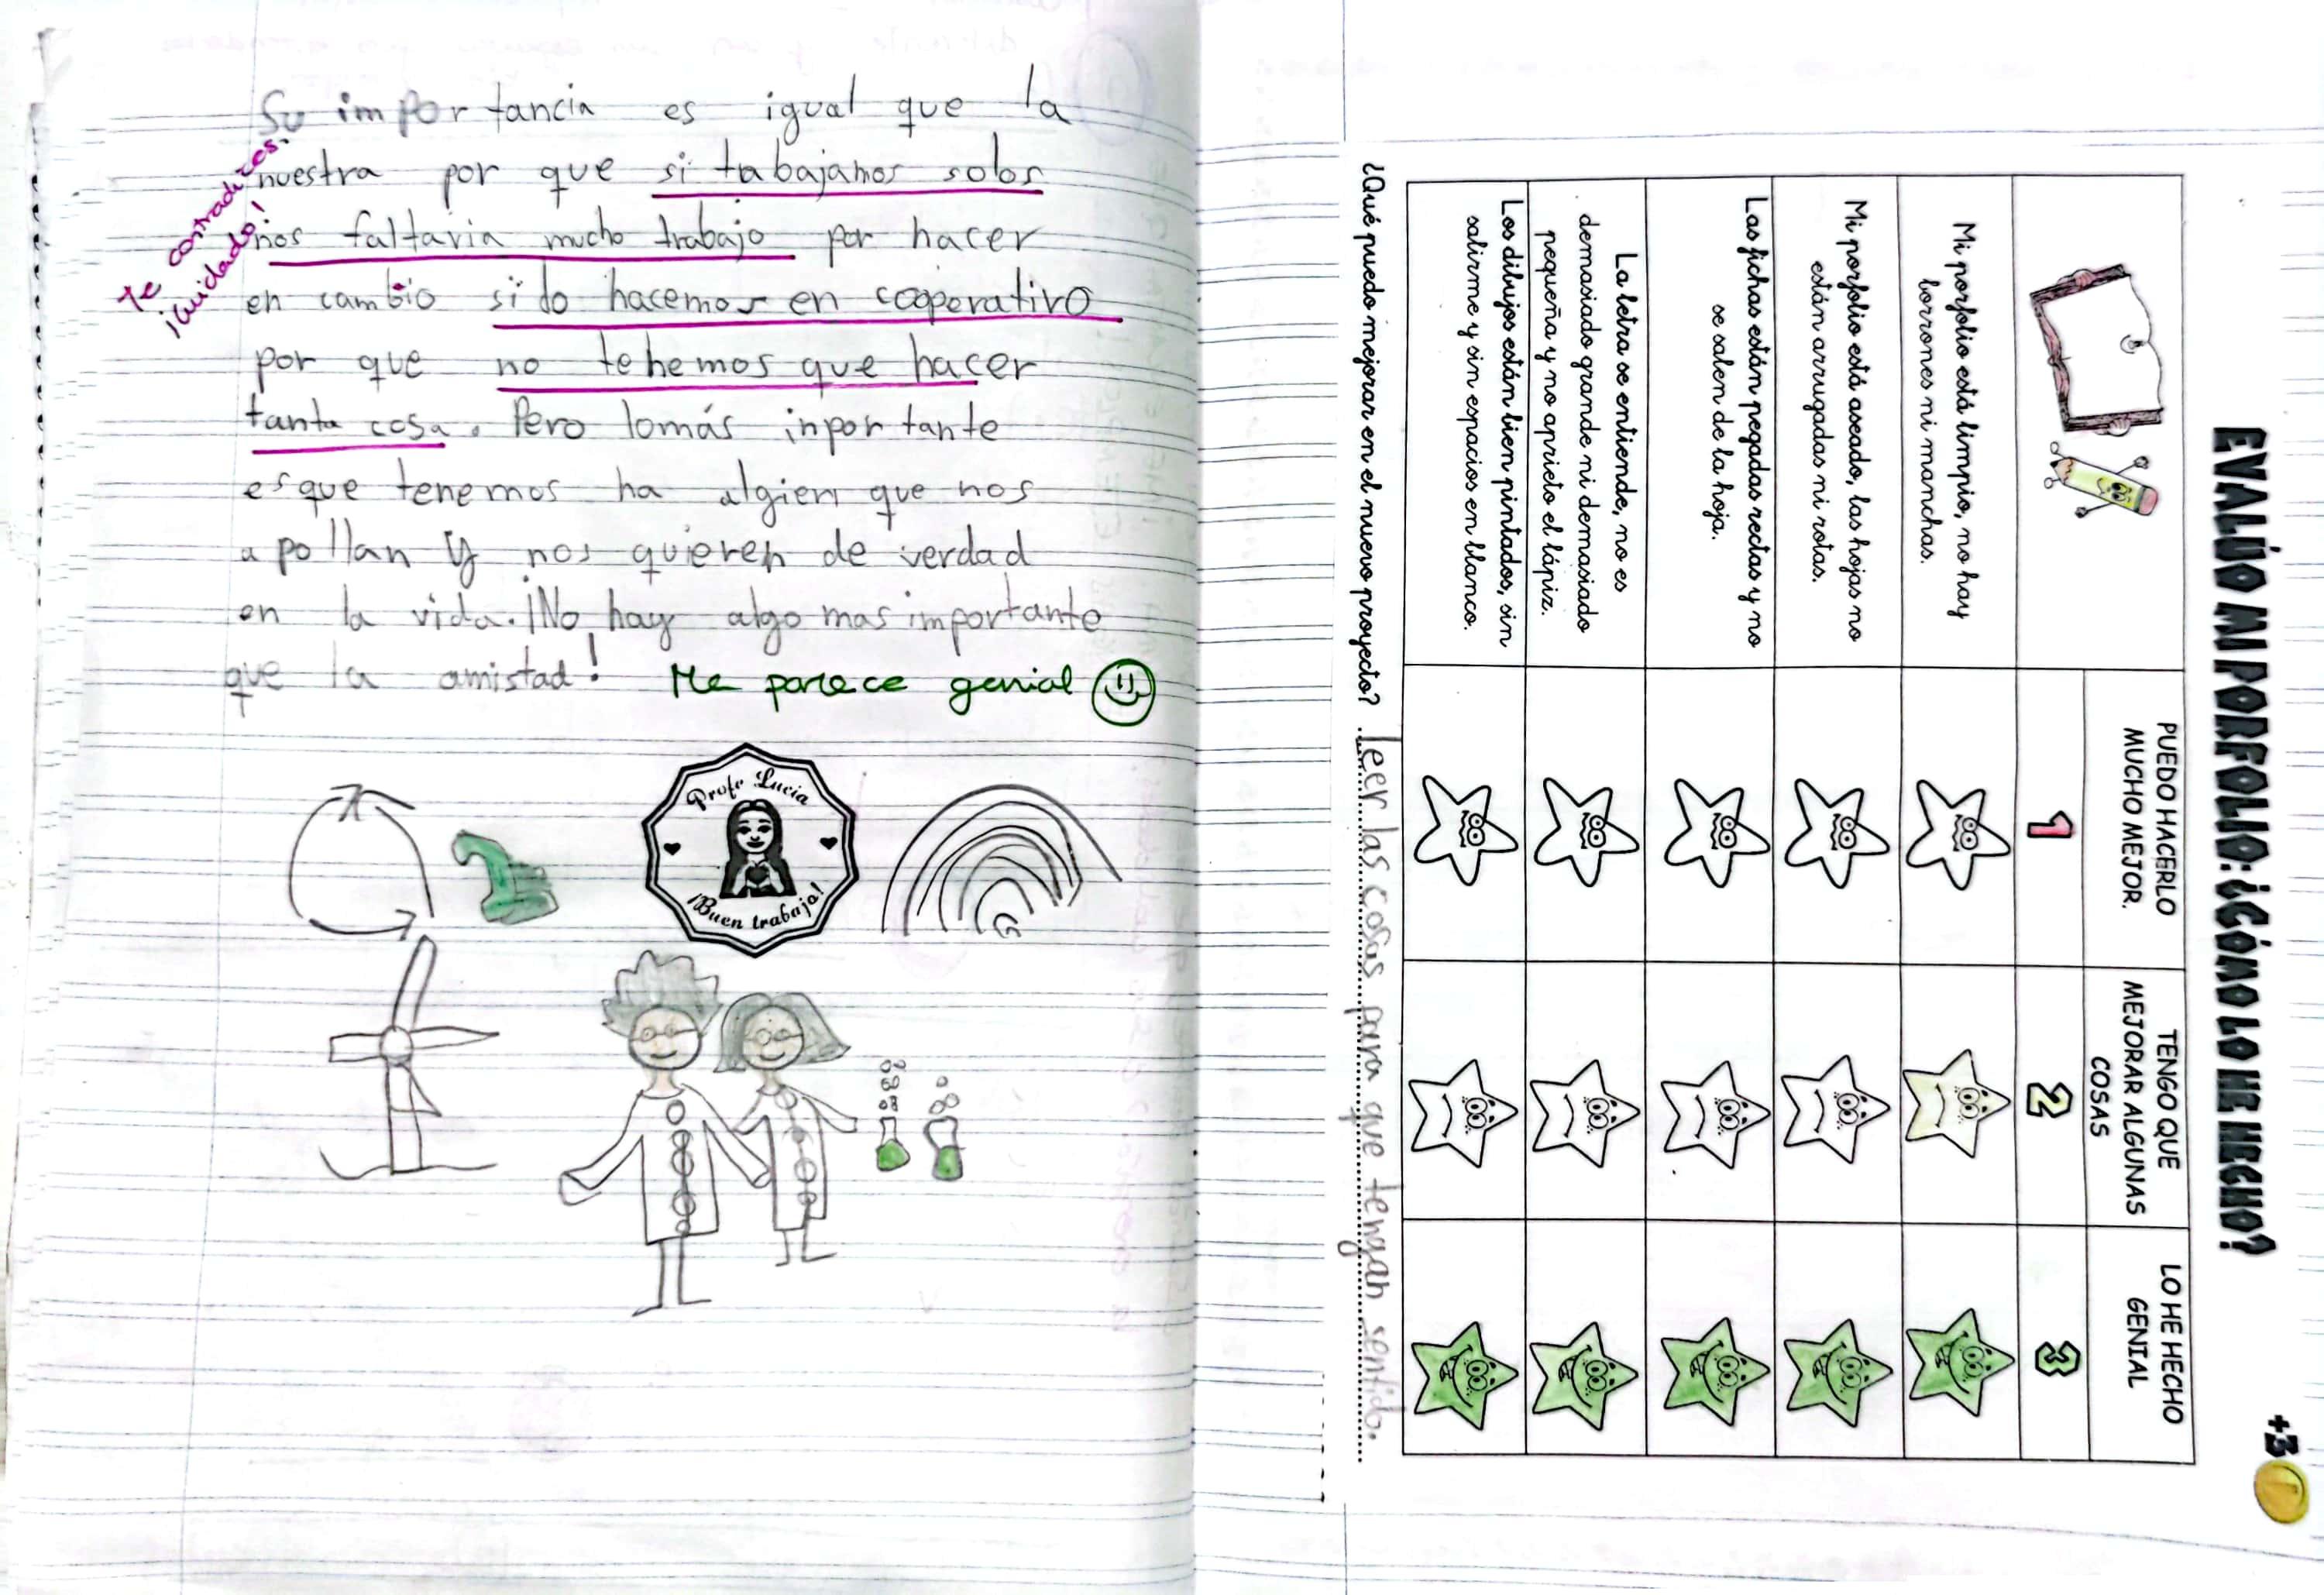 Su importancia es igual que la
nuestra por que si tabajamos solos
nos faltaria mucho trabajo por hacer
en cambio si lo hacemos en cooperativo
por que no tenemos que hacer
tanta cosa. Pero lomás inportante
esque tenemos ha algien que nos
apollan y nos quieren de verdad
en la vida. ¡No hay algo mas importante
que la amistad! Me parece genial
Te contradices.
¡Cuidado!
Profe Lucia
¡Buen trabajo!
EVALÚO MI PORFOLIO: ¿CÓMO LO HE HECHO?
+3
PUEDO HACERLO
MUCHO MEJOR.
TENGO QUE
MEJORAR ALGUNAS
COSAS
LO HE HECHO
GENIAL
1
2
3
Mi porfolio está limpio, no hay
borrones ni manchas.
Mi porfolio está aseado, las hojas no
están arrugadas ni rotas.
Las fichas están pegadas rectas y no
se salen de la hoja.
La letra se entiende, no es
demasiado grande ni demasiado
pequeña y no aprieto el lápiz.
Los dibujos están bien pintados, sin
salirme y sin espacios en blanco.
¿Qué puedo mejorar en el nuevo proyecto? leer las cosas para que tengan sentido.